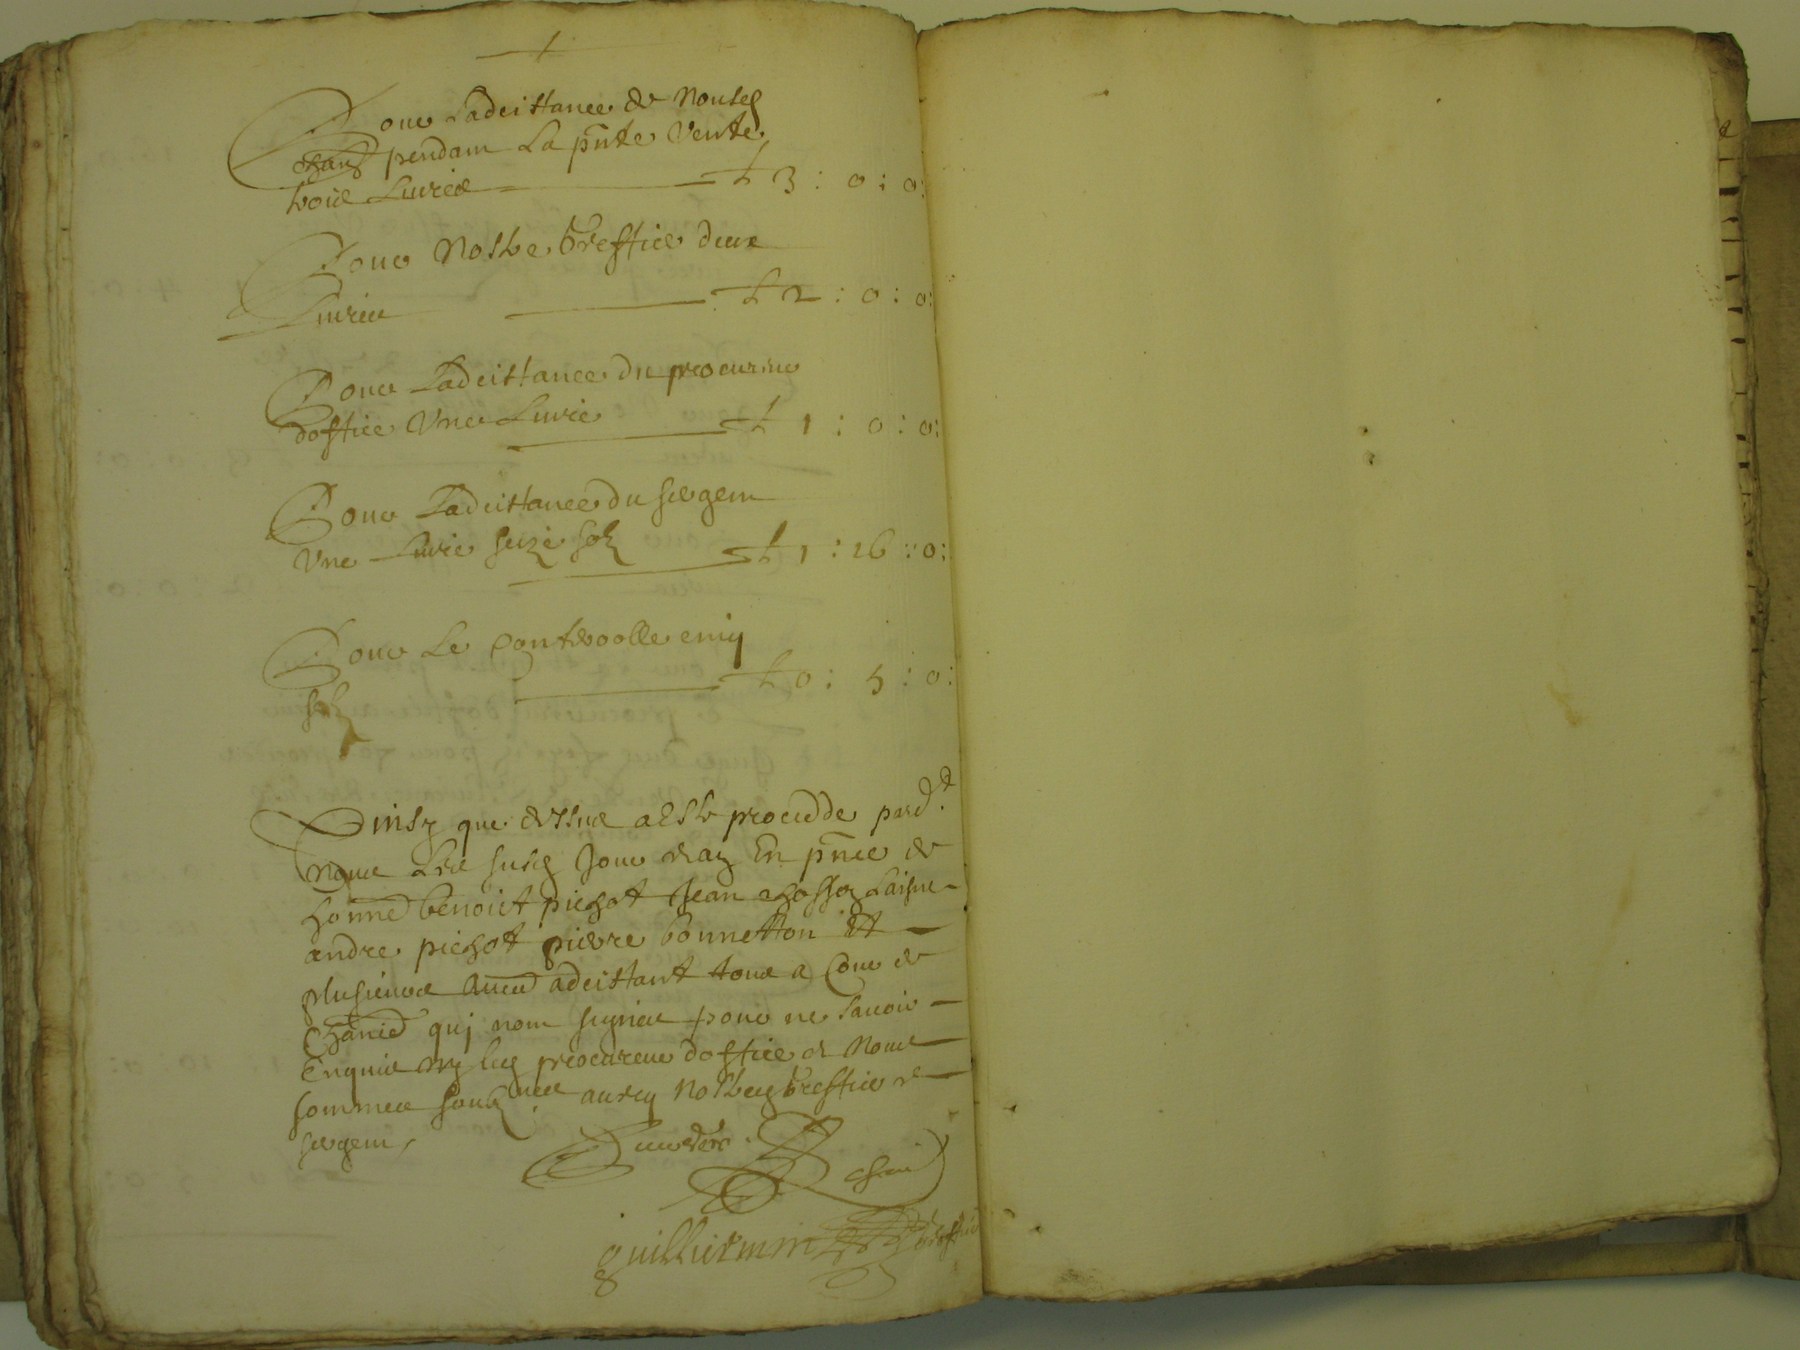 Pour Ladcistance de Nousd
chant pendam La pnte Vente
trois Livres ₶ 3 : 0 : 0 :
Pour Nostre Greffier deux
Livres ₶ 2 : 0 : 0 :
Pour Ladcistance du procureur
doffice Une Livre ₶ 1 : 0 : 0 :
Pour Ladcistance du sergent
Une Livre seize solz ₶ 1 : 16 : 0 :
Pour Le Controolle cinq
solz ₶ 0 : 5 : 0 :
Ainsy que dessus a este procedde pard.t
Nous Les susd Jour et an En pnce de
honned benoict pichot Jean Laisne
andre pichot pierre bonnetton Et
plusieurs adcistant tous a Cour de
quj nom signez pour ne Sauoir
Enquis procureur doffice et Nous
sommes soubz.nes auecq Nostred Greffier et
sergent
guilliermin greffier